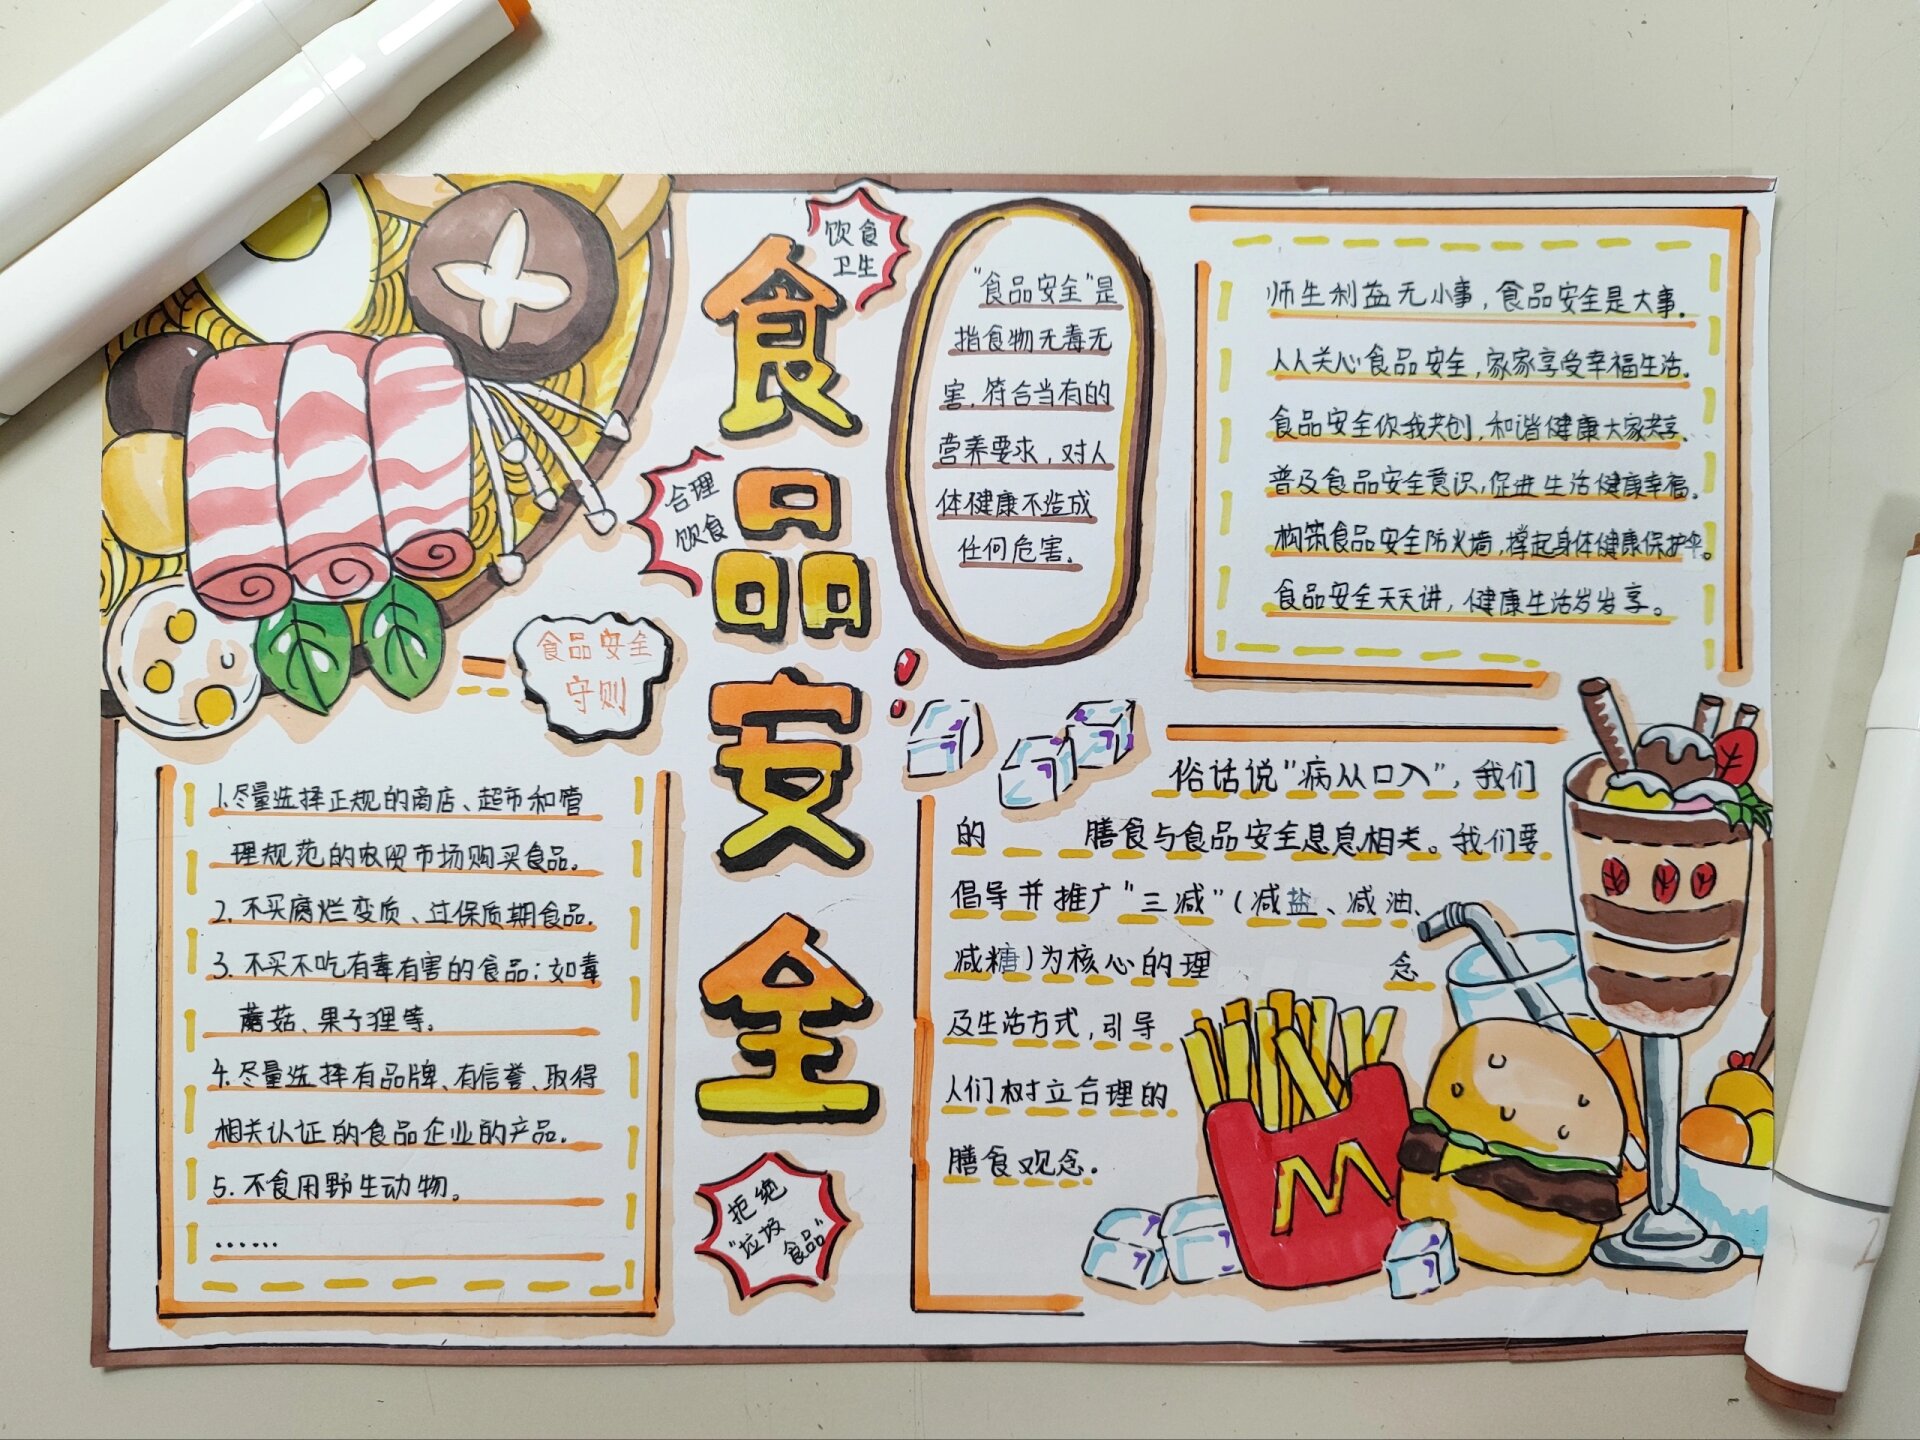 食品安全
饮食
卫生
合理
饮食
拒绝
"垃圾
食品"
食品安全
守则
1.尽量选择正规的商店、超市和管
理规范的农贸市场购买食品。
2.不买腐烂变质、过保质期食品。
3.不买不吃有毒有害的食品;如毒
蘑菇、果子狸等。
4.尽量选择有品牌、有信誉、取得
相关认证的食品企业的产品。
5.不食用野生动物。
……
"食品安全"是
指食物无毒无
害,符合当有的
营养要求,对人
体健康不造成
任何危害。
师生利益无小事,食品安全是大事。
人人关心食品安全,家家享受幸福生活。
食品安全你我共创,和谐健康大家共享。
普及食品安全意识,促进生活健康幸福。
构筑食品安全防火墙,撑起身体健康保护伞。
食品安全天天讲,健康生活岁岁享。
俗话说"病从口入",我们
的 膳食与食品安全息息相关。我们要
倡导并推广"三减"(减盐、减油、
减糖)为核心的理 念
及生活方式,引导
人们树立合理的
膳食观念。
M